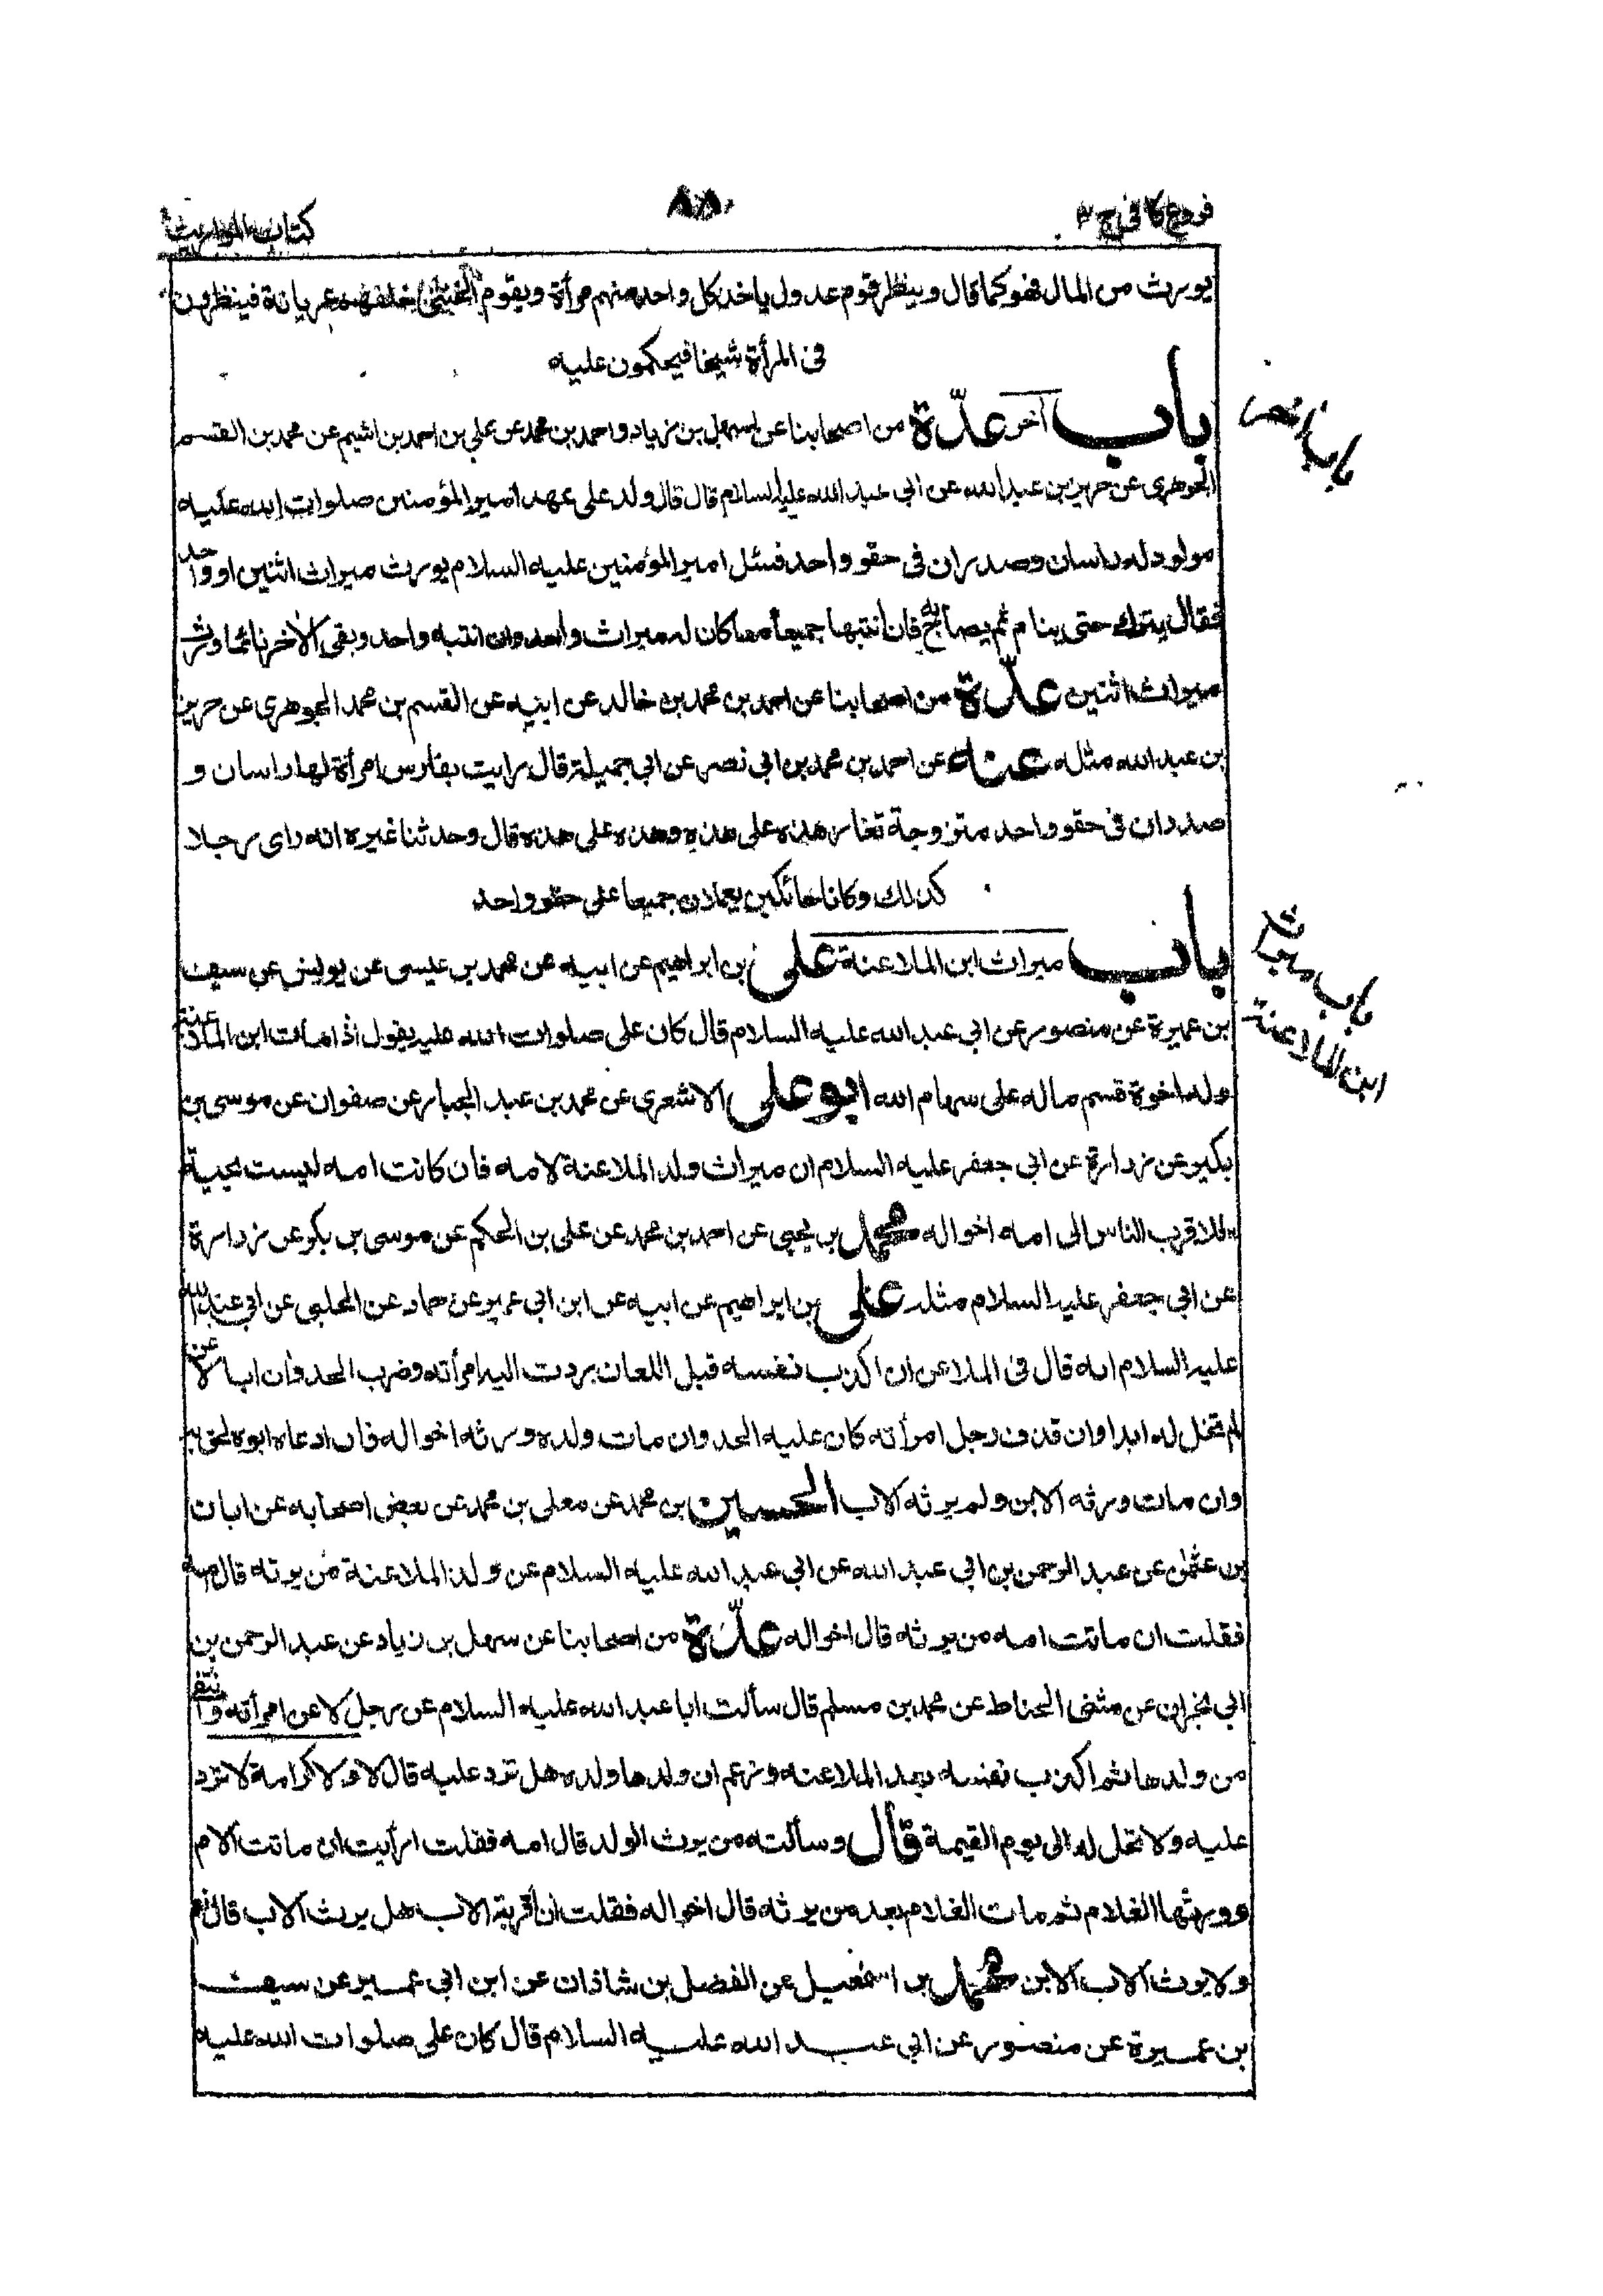 فروع كافى ج ٣
٨٨
كتاب المواريث
يورث من المال فهو كما قال وينظر قوم عدول ياخذ كل واحد منهم مرأة ويقوم الخنثى خلفهم عريانة فينظرون
فى المرأة شبحا فيحكمون عليه
باب آخر عدّة من اصحابنا عن سهل بن زياد واحمد بن محمد عن علي بن احمد بن اشيم عن محمد بن القسم
الجوهرى عن حريز بن عبد الله عن ابى عبد الله عليه السلام قال قال ولد على عهد امير المؤمنين صلوات الله عليه
مولود له راسان وصدران فى حقو واحد فسئل امير المؤمنين عليه السلام يورث ميراث اثنين او واحد
فقال يترك حتى ينام ثم يصاح به فان انتبها جميعا معا كان له ميراث واحد وان انتبه واحد وبقى الاخر نائما ورث
ميراث اثنين عدّة من اصحابنا عن احمد بن محمد بن خالد عن ابيه عن القسم بن محمد الجوهرى عن حريز
بن عبد الله مثله عنه عن احمد بن محمد بن ابى نصر عن ابى جميلة قال رايت بفارس امرأة لها راسان و
صدران فى حقو واحد متزوجة تغار هذه على هذه وهذه على هذه قال وحدثنا غيره انه راى رجلا
كذلك وكانا حائكين يعملان جميعا على حقو واحد
باب ميراث ابن الملاعنة على بن ابراهيم عن ابيه عن محمد بن عيسى عن يونس عن سيف
بن عميرة عن منصور عن ابى عبد الله عليه السلام قال كان على صلوات الله عليه يقول اذا مات ابن الملاعنة
وله اخوة قسم ماله على سهام الله ابو على الاشعرى عن محمد بن عبد الجبار عن صفوان عن موسى بن
بكير عن زرارة عن ابى جعفر عليه السلام ان ميراث ولد الملاعنة لامه فان كانت امه ليست بحية
فلاقرب الناس الى امه اخواله محمد بن يحيى عن احمد بن محمد عن على بن الحكم عن موسى بن بكر عن زرارة
عن ابى جعفر عليه السلام مثله على بن ابراهيم عن ابيه عن ابن ابى عمير عن حماد عن الحلبى عن ابى عبد الله
عليه السلام انه قال فى الملاعن ان اكذب نفسه قبل اللعان ردت اليه امرأته وضرب الحد وان ابا لاعن
لم تحل له ابدا وان قذف رجل امرأته كان عليه الحد وان مات ولده ورثه اخواله فان ادعاه ابوه لحق به
وان مات ورثه الابن ولم يرثه الاب الحسين بن محمد عن معلى بن محمد عن بعض اصحابه عن ابان
بن عثمن عن عبد الرحمن بن ابى عبد الله عن ابى عبد الله عليه السلام عن ولد الملاعنة من يرثه قال امه
فقلت ان ماتت امه من يرثه قال اخواله عدّة من اصحابنا عن سهل بن زياد عن عبد الرحمن بن
ابى نجران عن مثنى الحناط عن محمد بن مسلم قال سألت ابا عبد الله عليه السلام عن رجل لاعن امرأته وانتفى
من ولدها ثم اكذب نفسه بعد الملاعنه وزعم ان ولدها ولده هل ترد عليه قال لا ولا كرامة لا ترد
عليه ولا تحل له الى يوم القيمة قال وسألته من يرث الولد قال امه فقلت ارأيت ان ماتت الام
وورثها الغلام ثم مات الغلام بعد من يرثه قال اخواله فقلت ان اقر به الاب هل يرث الاب قال نعم
ولا يرث الاب الابن محمد بن اسمعيل عن الفضل بن شاذان عن ابن ابى عمير عن سيف
بن عميرة عن منصور عن ابى عبد الله عليه السلام قال كان على صلوات الله عليه
باب اخر
باب ميراث
ابن الملاعنة